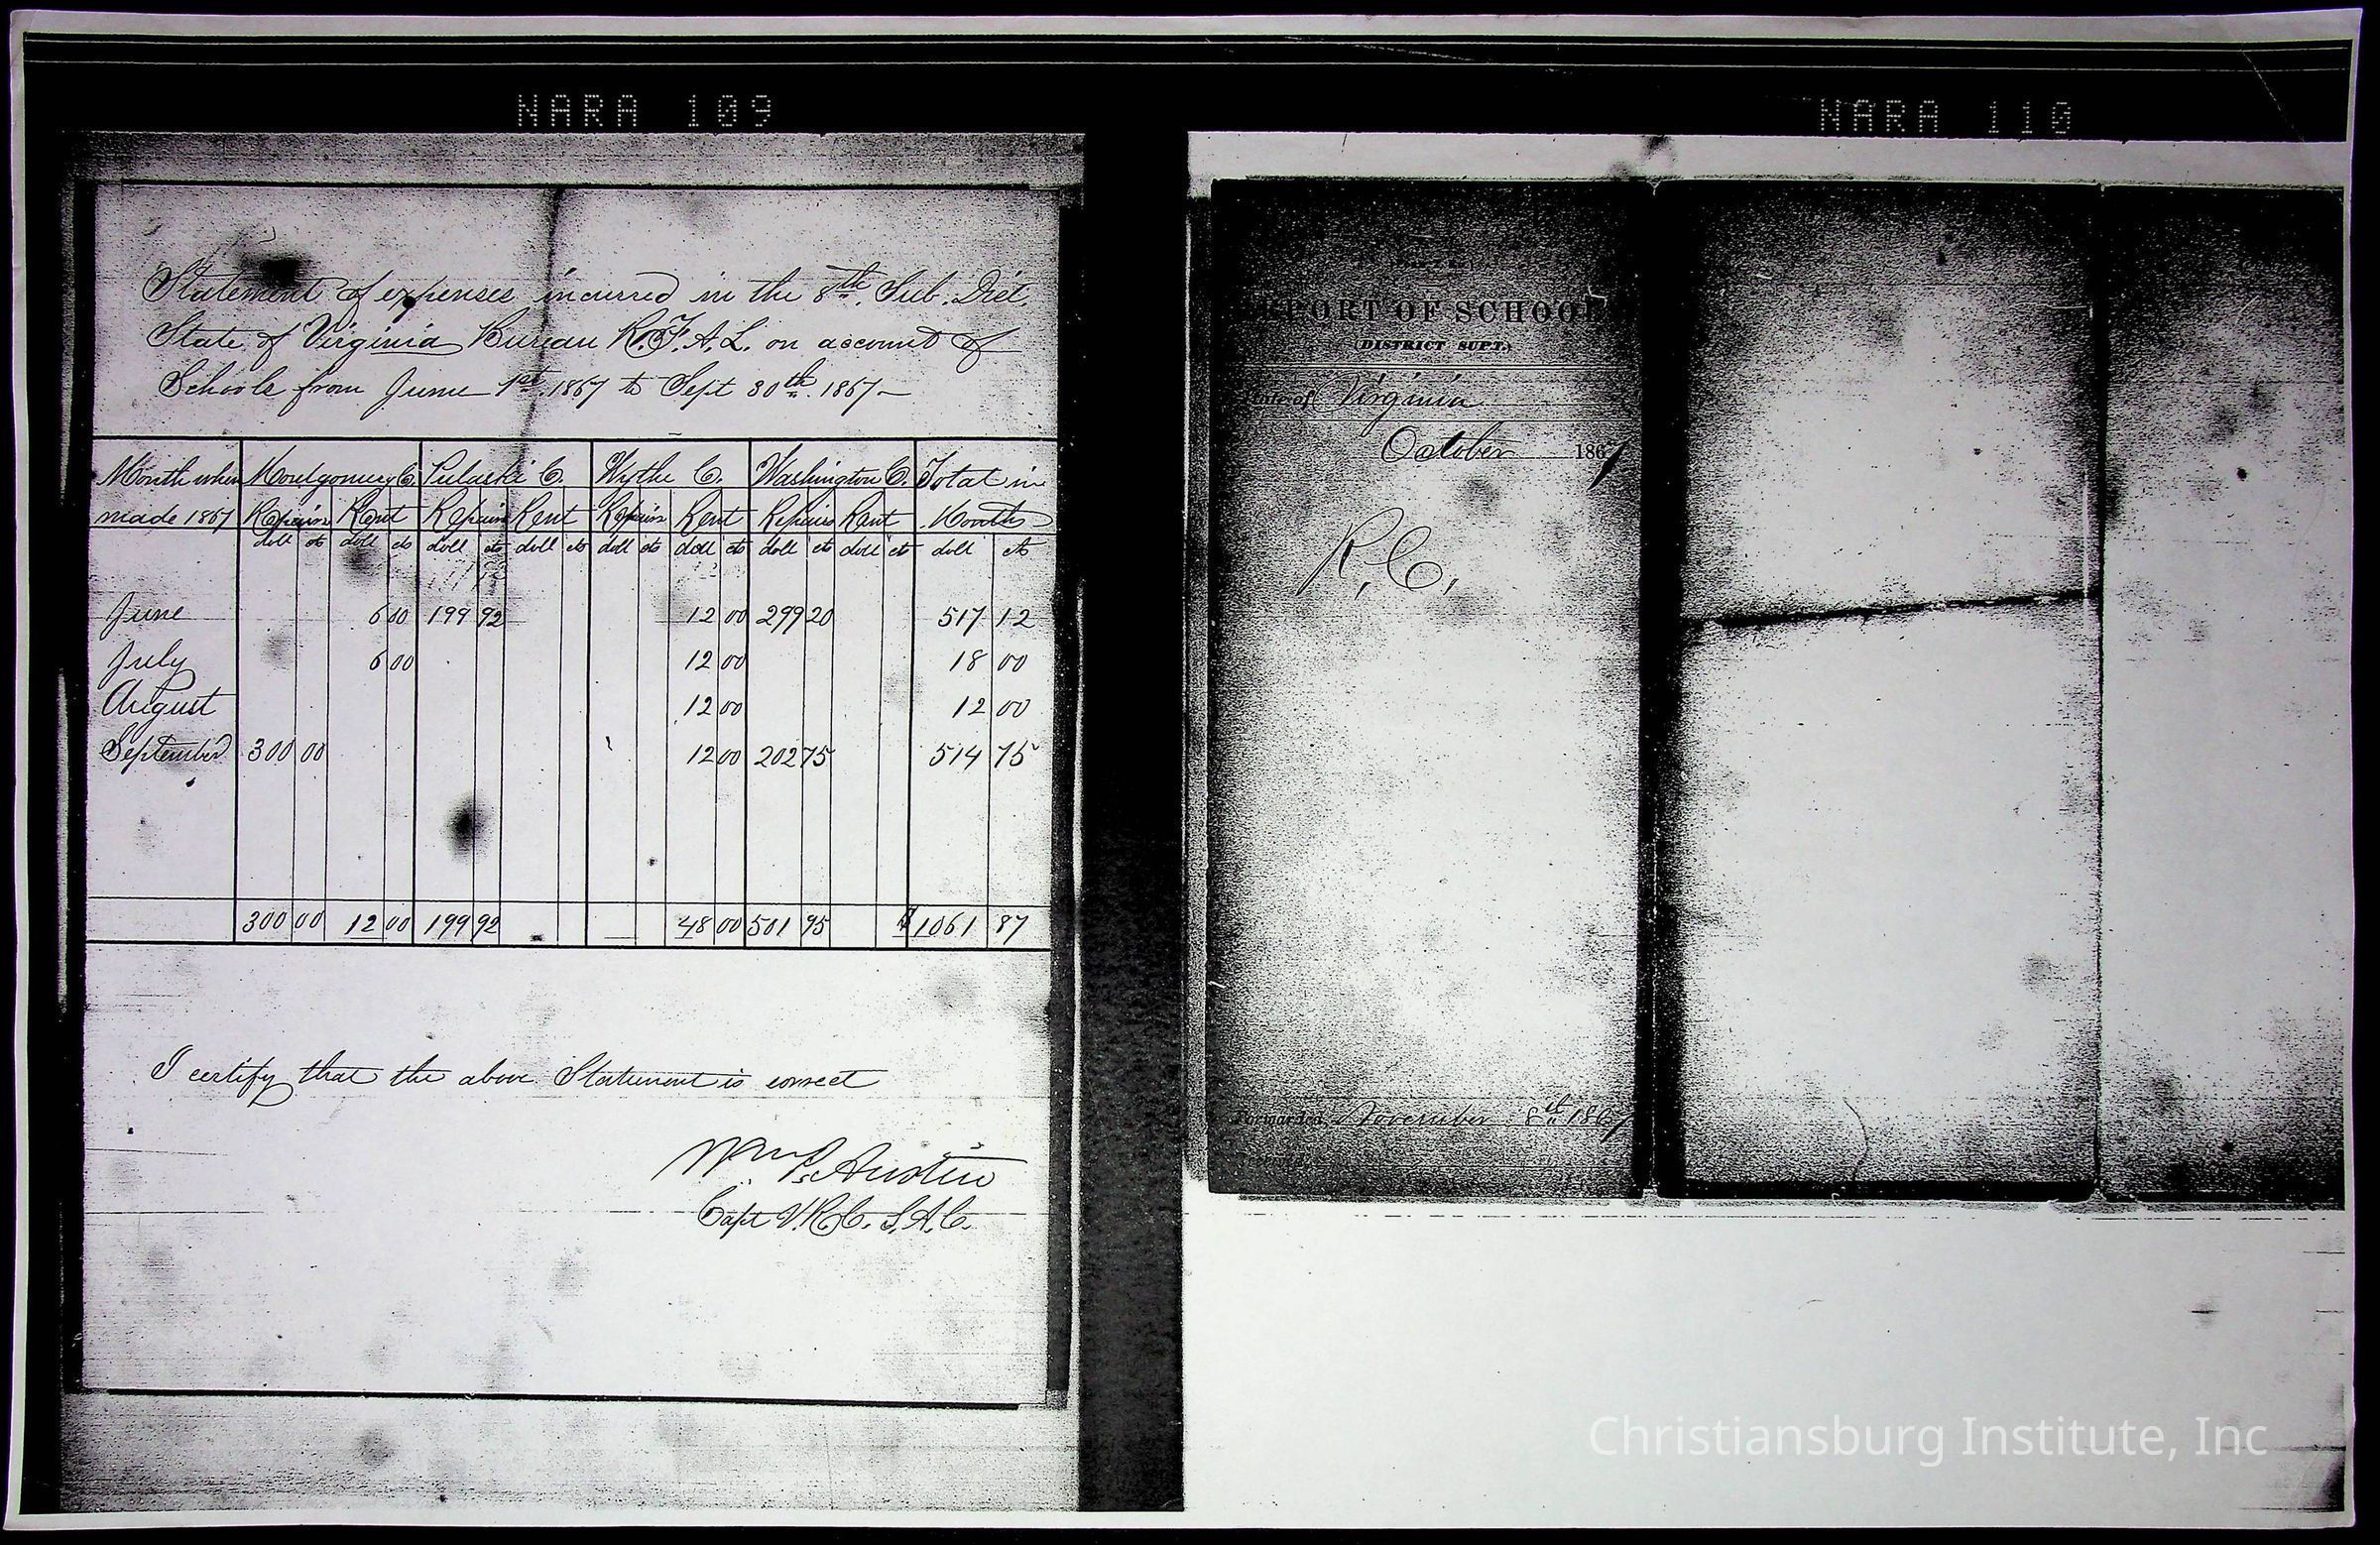 NARA 109
Statement of expenses incurred in the 8th. Sub. Dist.
State of Virginia Bureau R.F.A.L. on account of
Schools from June 1st. 1867 to Sept 30th. 1867-
Month when Montgomery C. Pulaski C. Wythe C. Washington C. Total in
made 1867 Repairs Rent Repairs Rent Repairs Rent Repairs Rent Months
doll cts doll cts doll cts doll cts doll cts doll cts doll cts doll cts doll cts
June 6 00 199 92 12 00 299 20 517 12
July 6 00 12 00 18 00
August 12 00 12 00
September 300 00 12 00 202 75 514 75
300 00 12 00 199 92 48 00 501 95 $1061 87
I certify that the above Statement is correct
Wm P. Austin
Capt V.R.C. S.A.C.
NARA 110
REPORT OF SCHOOLS
(DISTRICT SUPT.)
State of Virginia
October 1867
R, C,
Forwarded, November 8th 1867
Christiansburg Institute, Inc